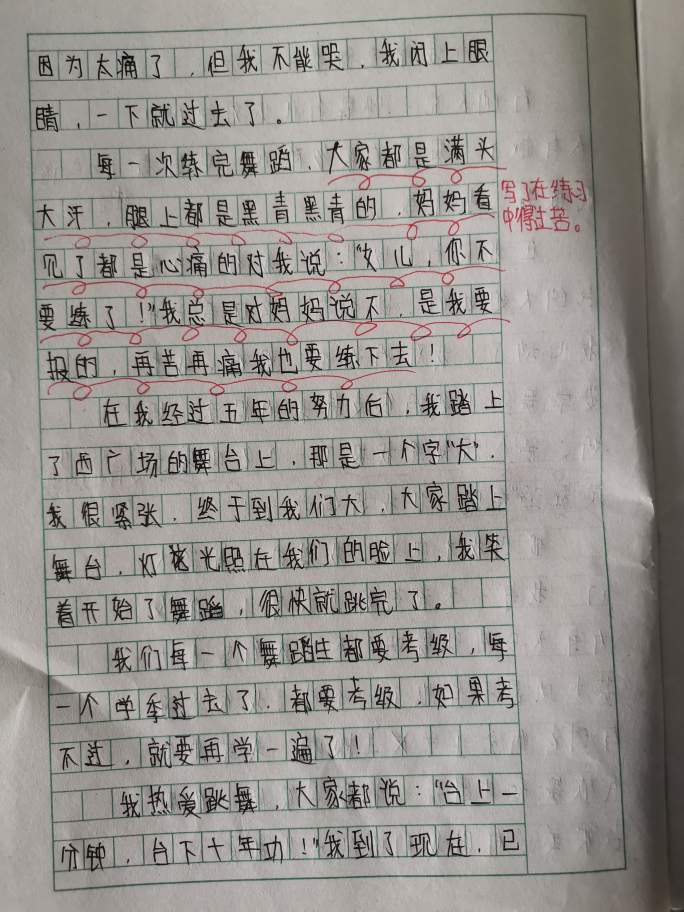 因为太痛了，但我不能哭，我闭上眼
睛，一下就过去了。
每一次练完舞蹈，大家都是满头
大汗，腿上都是黑青黑青的，妈妈看
见了都是心痛的对我说：“女儿，你不
要练了！”我总是对妈妈说不，是我要
报的，再苦再痛我也要练下去！
写了在练习
中得过苦。
在我经过五年的努力后，我踏上
了西广场的舞台上，那是一个字“大”.
我很紧张，终于到我们大，大家踏上
舞台，灯光照在我们的脸上，我笑
着开始了舞蹈，很快就跳完了。
我们每一个舞蹈生都要考级，每
一个学季过去了，都要考级，如果考
不过，就要再学一遍了！
我热爱跳舞，大家都说：“台上一
分钟，台下十年功！”我到了现在，已